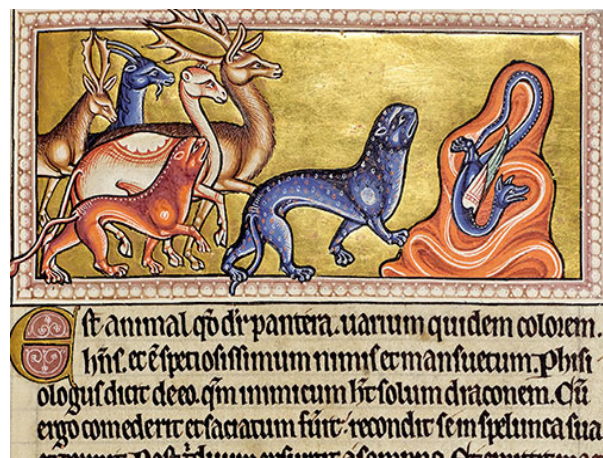 Est animal q̃o d̃r pantera. uarium quidem colorem.
h̃ns. et ẽ speciosissimum nimis et mansuetum. Phisi
ologus dicit de eo. q̃m inimicum h̃t solum draconem. Cũ
ergo comederit et saciatum fũit: recondit se in spelunca sua